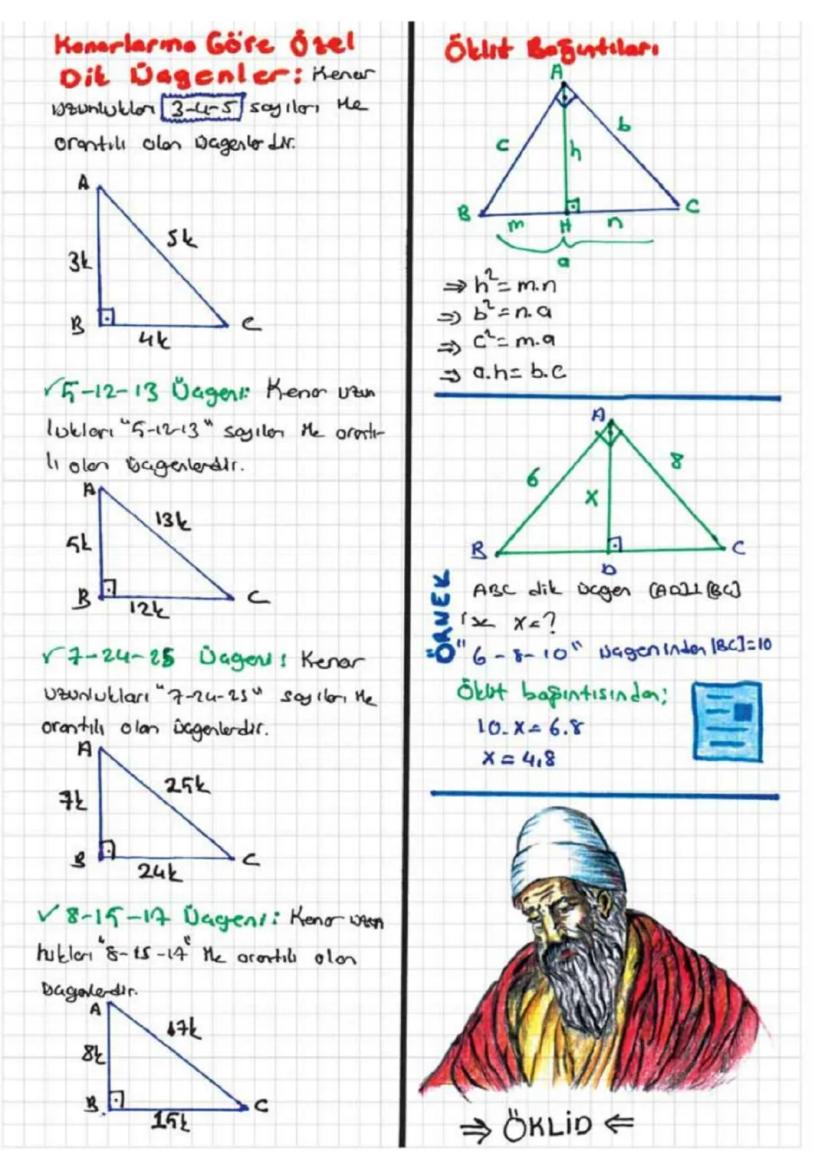 Kenarlarına Göre Özel
Dik Üçgenler: Kenar
uzunlukları 3-4-5 sayıları ile
orantılı olan üçgenlerdir.
A
5k
3k
B
4k
C
✓5-12-13 Üçgeni: Kenar uzun
lukları "5-12-13" sayıları ile orantı-
lı olan üçgenlerdir.
A
13k
5k
B
12k
C
✓7-24-25 Üçgeni: Kenar
uzunlukları "7-24-25" sayıları ile
orantılı olan üçgenlerdir.
A
25k
7k
B
24k
C
✓8-15-17 Üçgeni: Kenar uzun
lukları "8-15-17" ile orantılı olan
üçgenlerdir.
A
17k
8k
B
15k
C
Öklit Bağıntıları
A
c
b
h
B
m
H
n
C
a
⇒ h²= m.n
⇒ b²= n.a
⇒ c²= m.a
⇒ a.h= b.c
A
6
8
x
B
C
D
ÖRNEK
ABC dik üçgen [AD]⊥[BC]
ise x=?
"6-8-10" üçgeninden |BC|=10
Öklit bağıntısından;
10.x=6.8
x=4,8
⇒ ÖKLİD ⇐